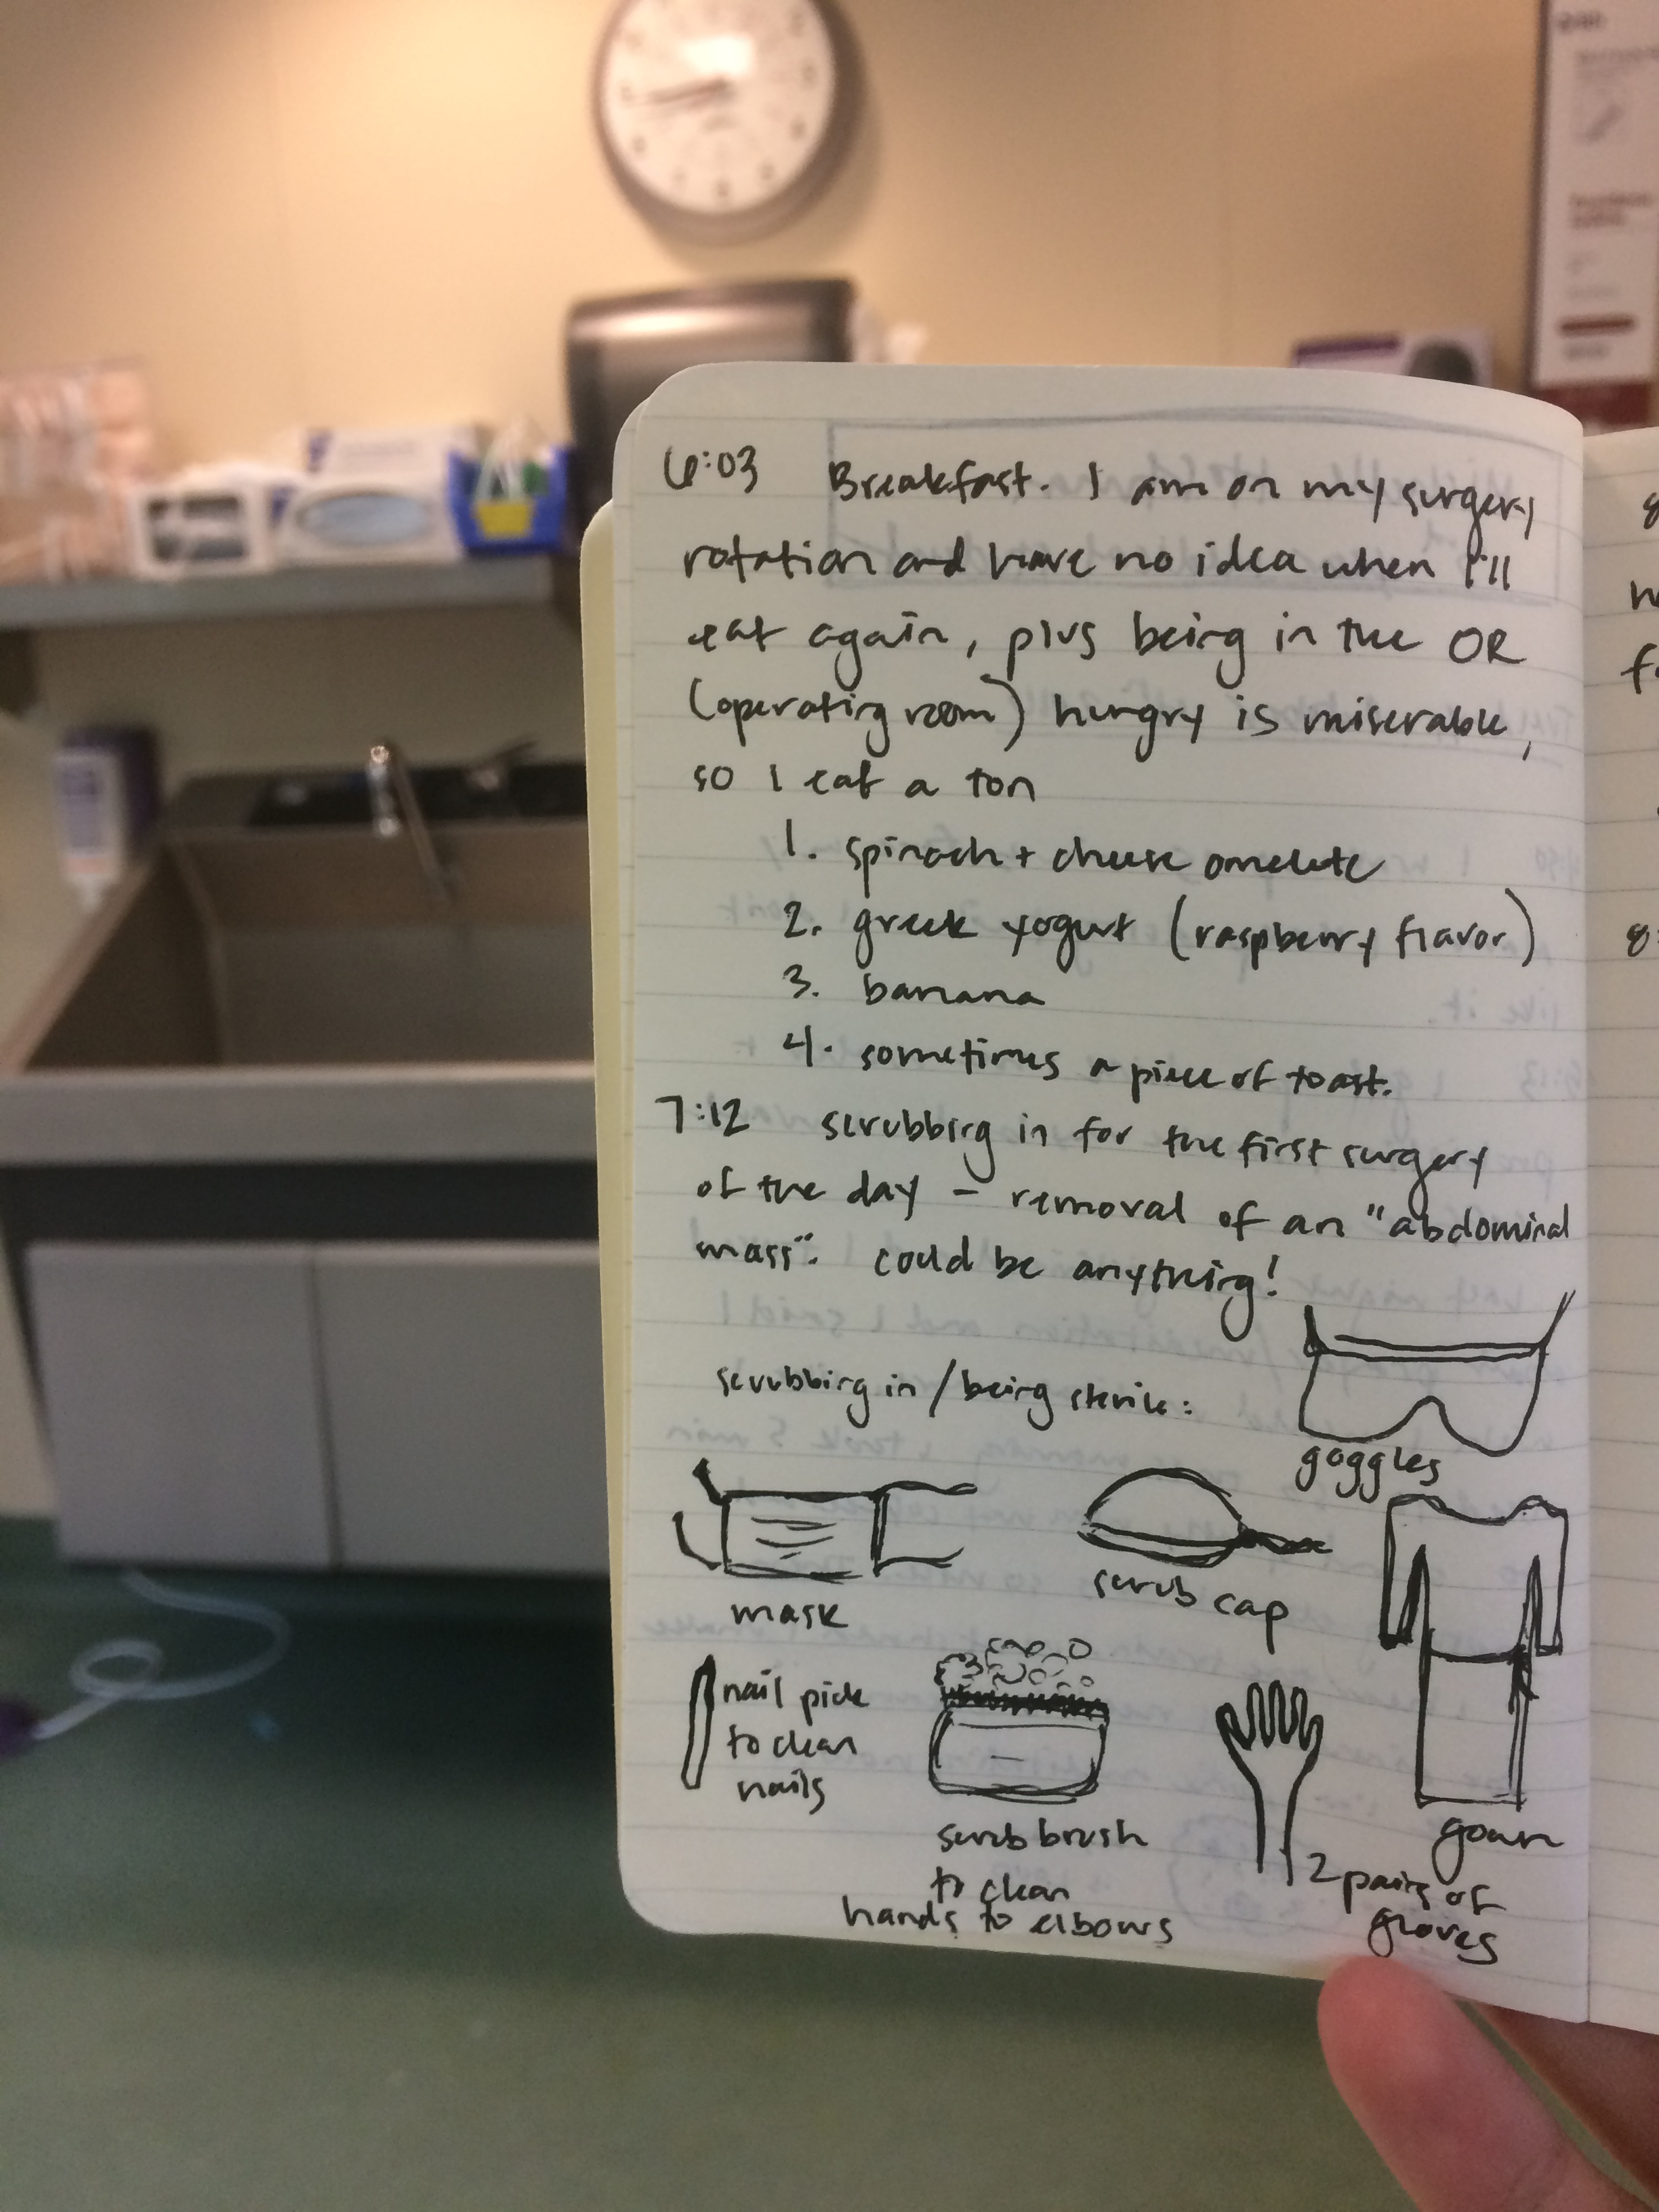 6:03 Breakfast. I am on my surgery
rotation and have no idea when I'll
eat again, plus being in the OR
(operating room) hungry is miserable,
so I eat a ton
1. spinach + cheese omelete
2. greek yogurt (raspberry flavor)
3. banana
4. sometimes a piece of toast.
7:12 scrubbing in for the first surgery
of the day - removal of an "abdominal
mass". could be anything!
scrubbing in / being sterile:
goggles
mask
scrub cap
nail pick
to clean
nails
scrub brush
to clean
hands to elbows
2 pairs of
gloves
gown